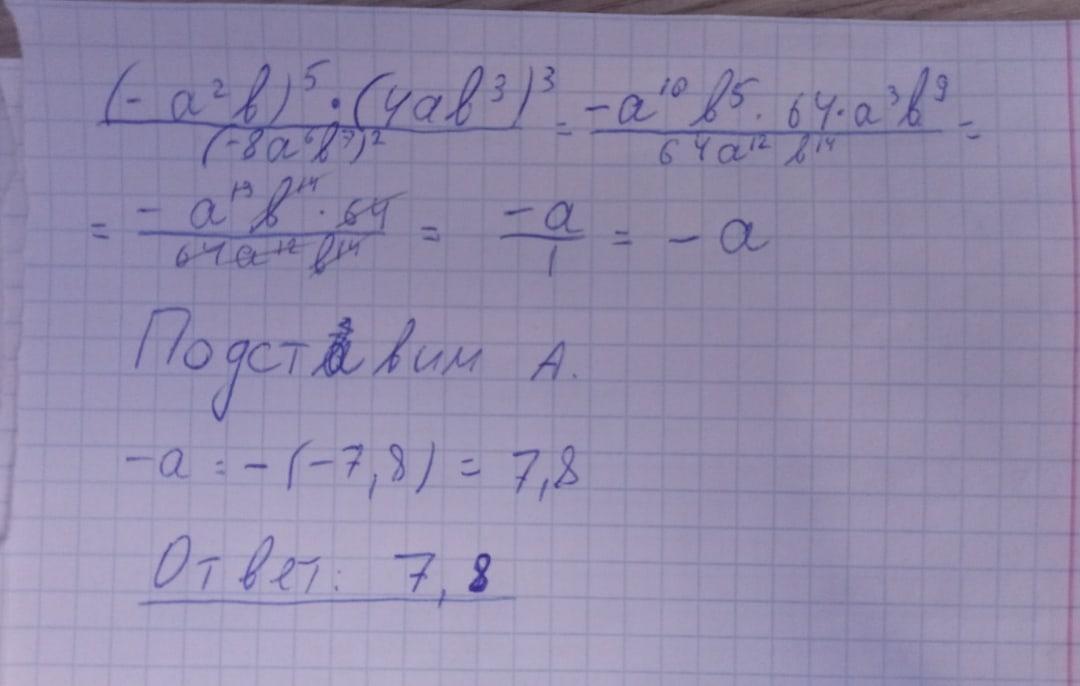 (- a²b)⁵ · (4ab³)³ / (-8a⁶b⁷)² = -a¹⁰b⁵ · 64 · a³b⁹ / 64a¹² b¹⁴ =
= - a¹³b¹⁴ · 64 / 64a¹²b¹⁴ = -a / 1 = - a
Подставим А.
-a = -(-7,8) = 7,8
Ответ: 7,8